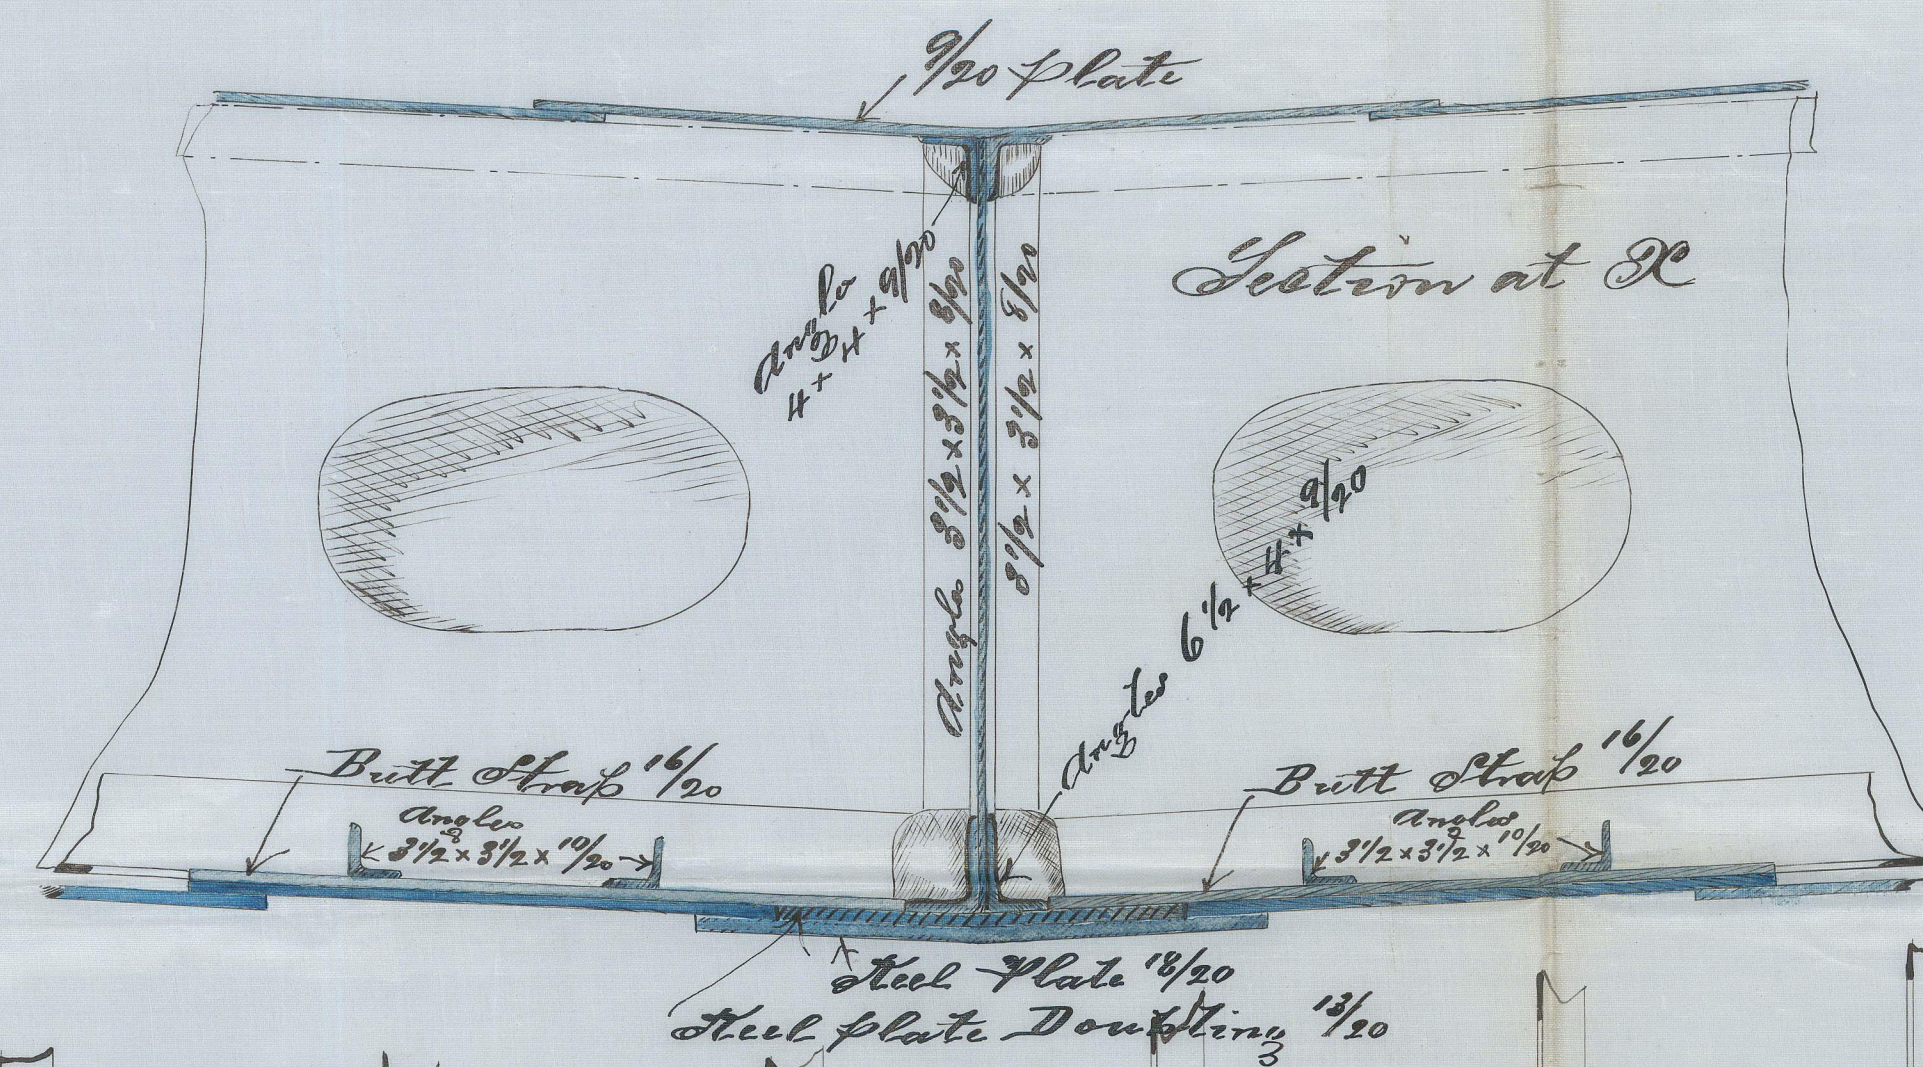 9/20 Plate
Section at X
Angle
4 × 4 × 9/20
Angles 3 1/2 × 3 1/2 × 8/20
3 1/2 × 3 1/2 × 8/20
Angles 6 1/2 × 4 × 9/20
Butt Strap 16/20
Butt Strap 16/20
Angles
3 1/2 × 3 1/2 × 10/20
Angles
3 1/2 × 3 1/2 × 10/20
Keel Plate 18/20
Keel plate Doubling 13/20